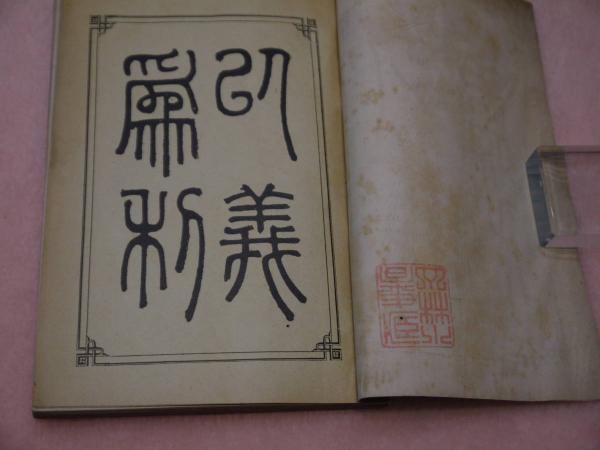 以義
爲利